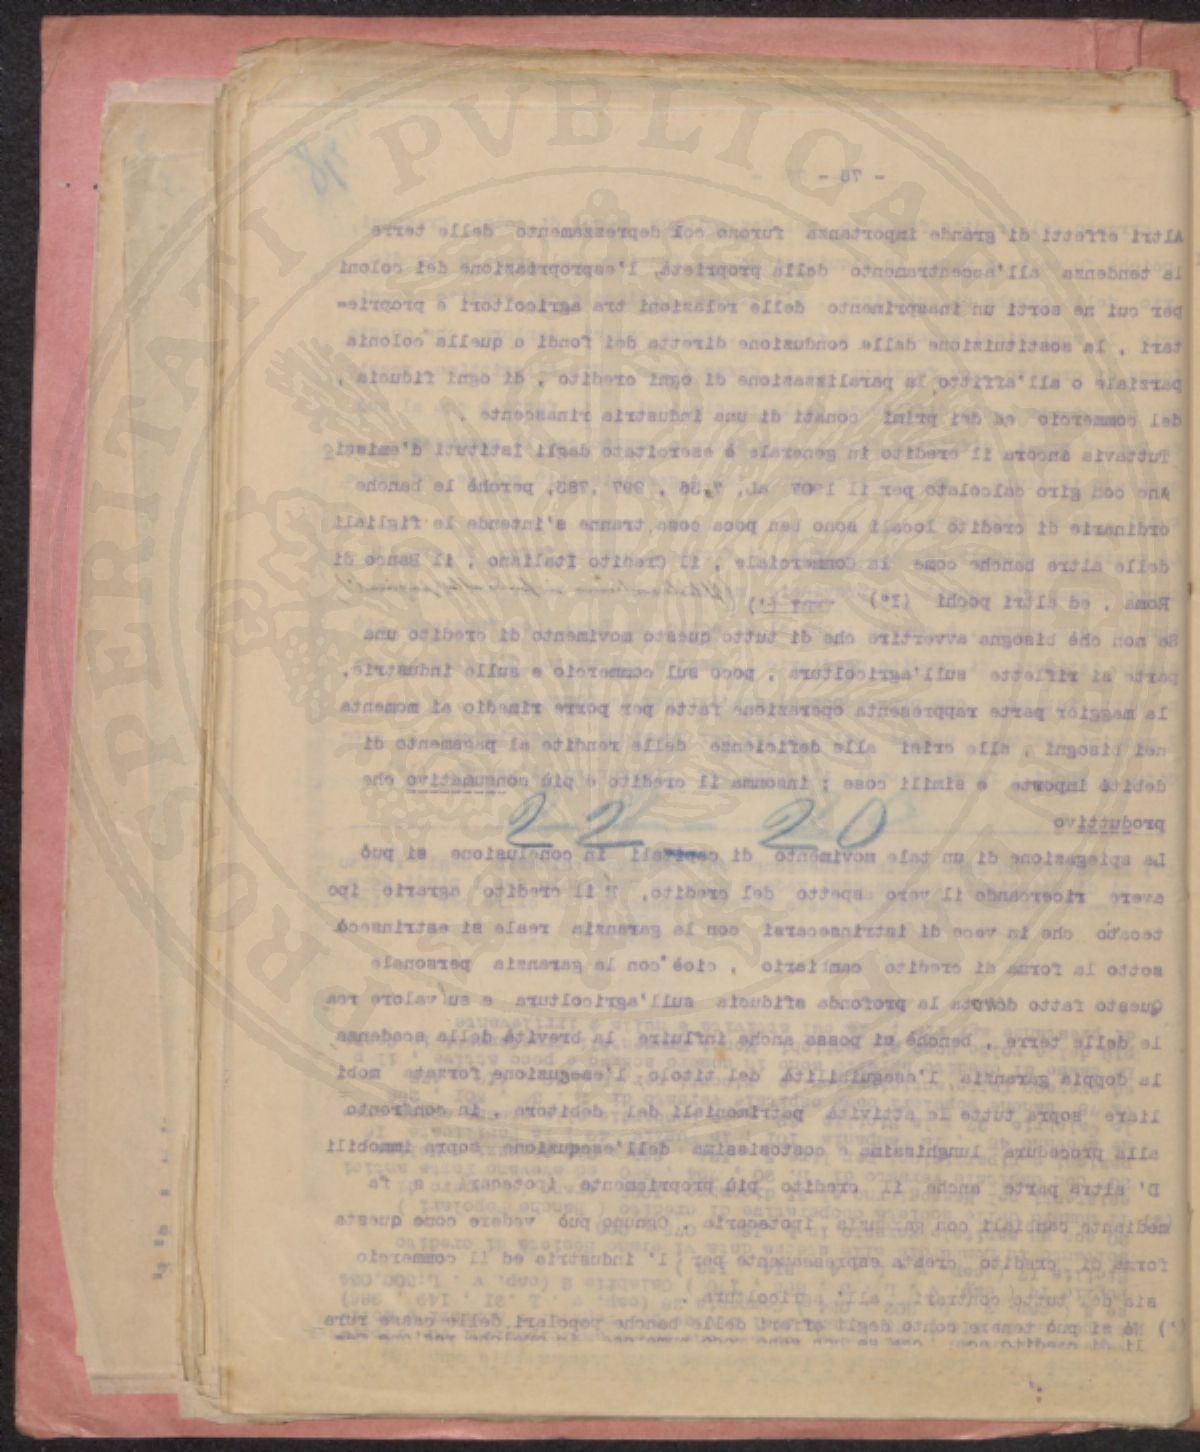 - 78 -
Altri effetti di grande importanza furono col deprezzamento delle terre
la tendenza all'accentramento della proprietà, l'espropriazione dei coloni
per cui ne sorti un inasprimento delle relazioni tra agricoltori e proprie=
tari , la sostituizione dalla conduzione diretta dei fondi o quella colonia
parziale o all'affitto la paralizzazione di ogni credito , di ogni fiducia ,
del commercio ed dei primi conati di una industria rinascente .
Tuttavia ancora il credito in generale è esercitato dagli Istituti d'emissi
Ane con giro calcolato per il 1907 , 997 ,783, perchè le banche
ordinarie di credito locali sono ben poca cosa tranne s'intende le figliali
delle altre banche come la Commerciale , il Credito Italiano ; il Banco di
Roma , ed altri pochi (I°)
Se non chè bisogna avvertire che di tutto questo movimento di credito una
parte si riflette sull'agricoltura ; poco sul commercio e sulle industrie,
la maggior parte rappresenta operazione fatte per porre rimedio ai momenta
nei bisogni , alle crisi alle deficienze delle rendite al pagamento di
debitè imposte e simili cose ; insomma il credito è più consumativo che
produttivo
22 20
La spiegazione di un tale movimento di capitali in conclusione si può
avere ricercando il vero aspetto del credito, E il credito agrario ipo
tecato che in vece di istrinsecarsi con la garanzia reale si estrinsecò
sotto la forma di credito cambiario , cioè con la garanzia personale
Questo fatto denota la profonda sfiducia sull'agricoltura e su valore rea
le delle terre , benchè ci possa anche influire la brevità della scadenza
la doppia garanzia l'eseguibilità del titolo l'esecuzione forzata mobi
liare sopra tutte le attività patrimoniali del debitore , in confronto
alla procedura lunghissima e costosissima dell'esecuzione sopra immobili
D' altra parte anche il credito più propriamente ipotecari s fa
mediante cambiali con garanzia ipotecaria . Ognuno può vedere come questa
forma di credito creata espressamente per l' industria ed il commercio
sia del tutto contrari all' agricoltura .
(') Nè si può tenere conto degli affari delle banche popolari delle casse rura
PROSPERITATI PVBLICAE